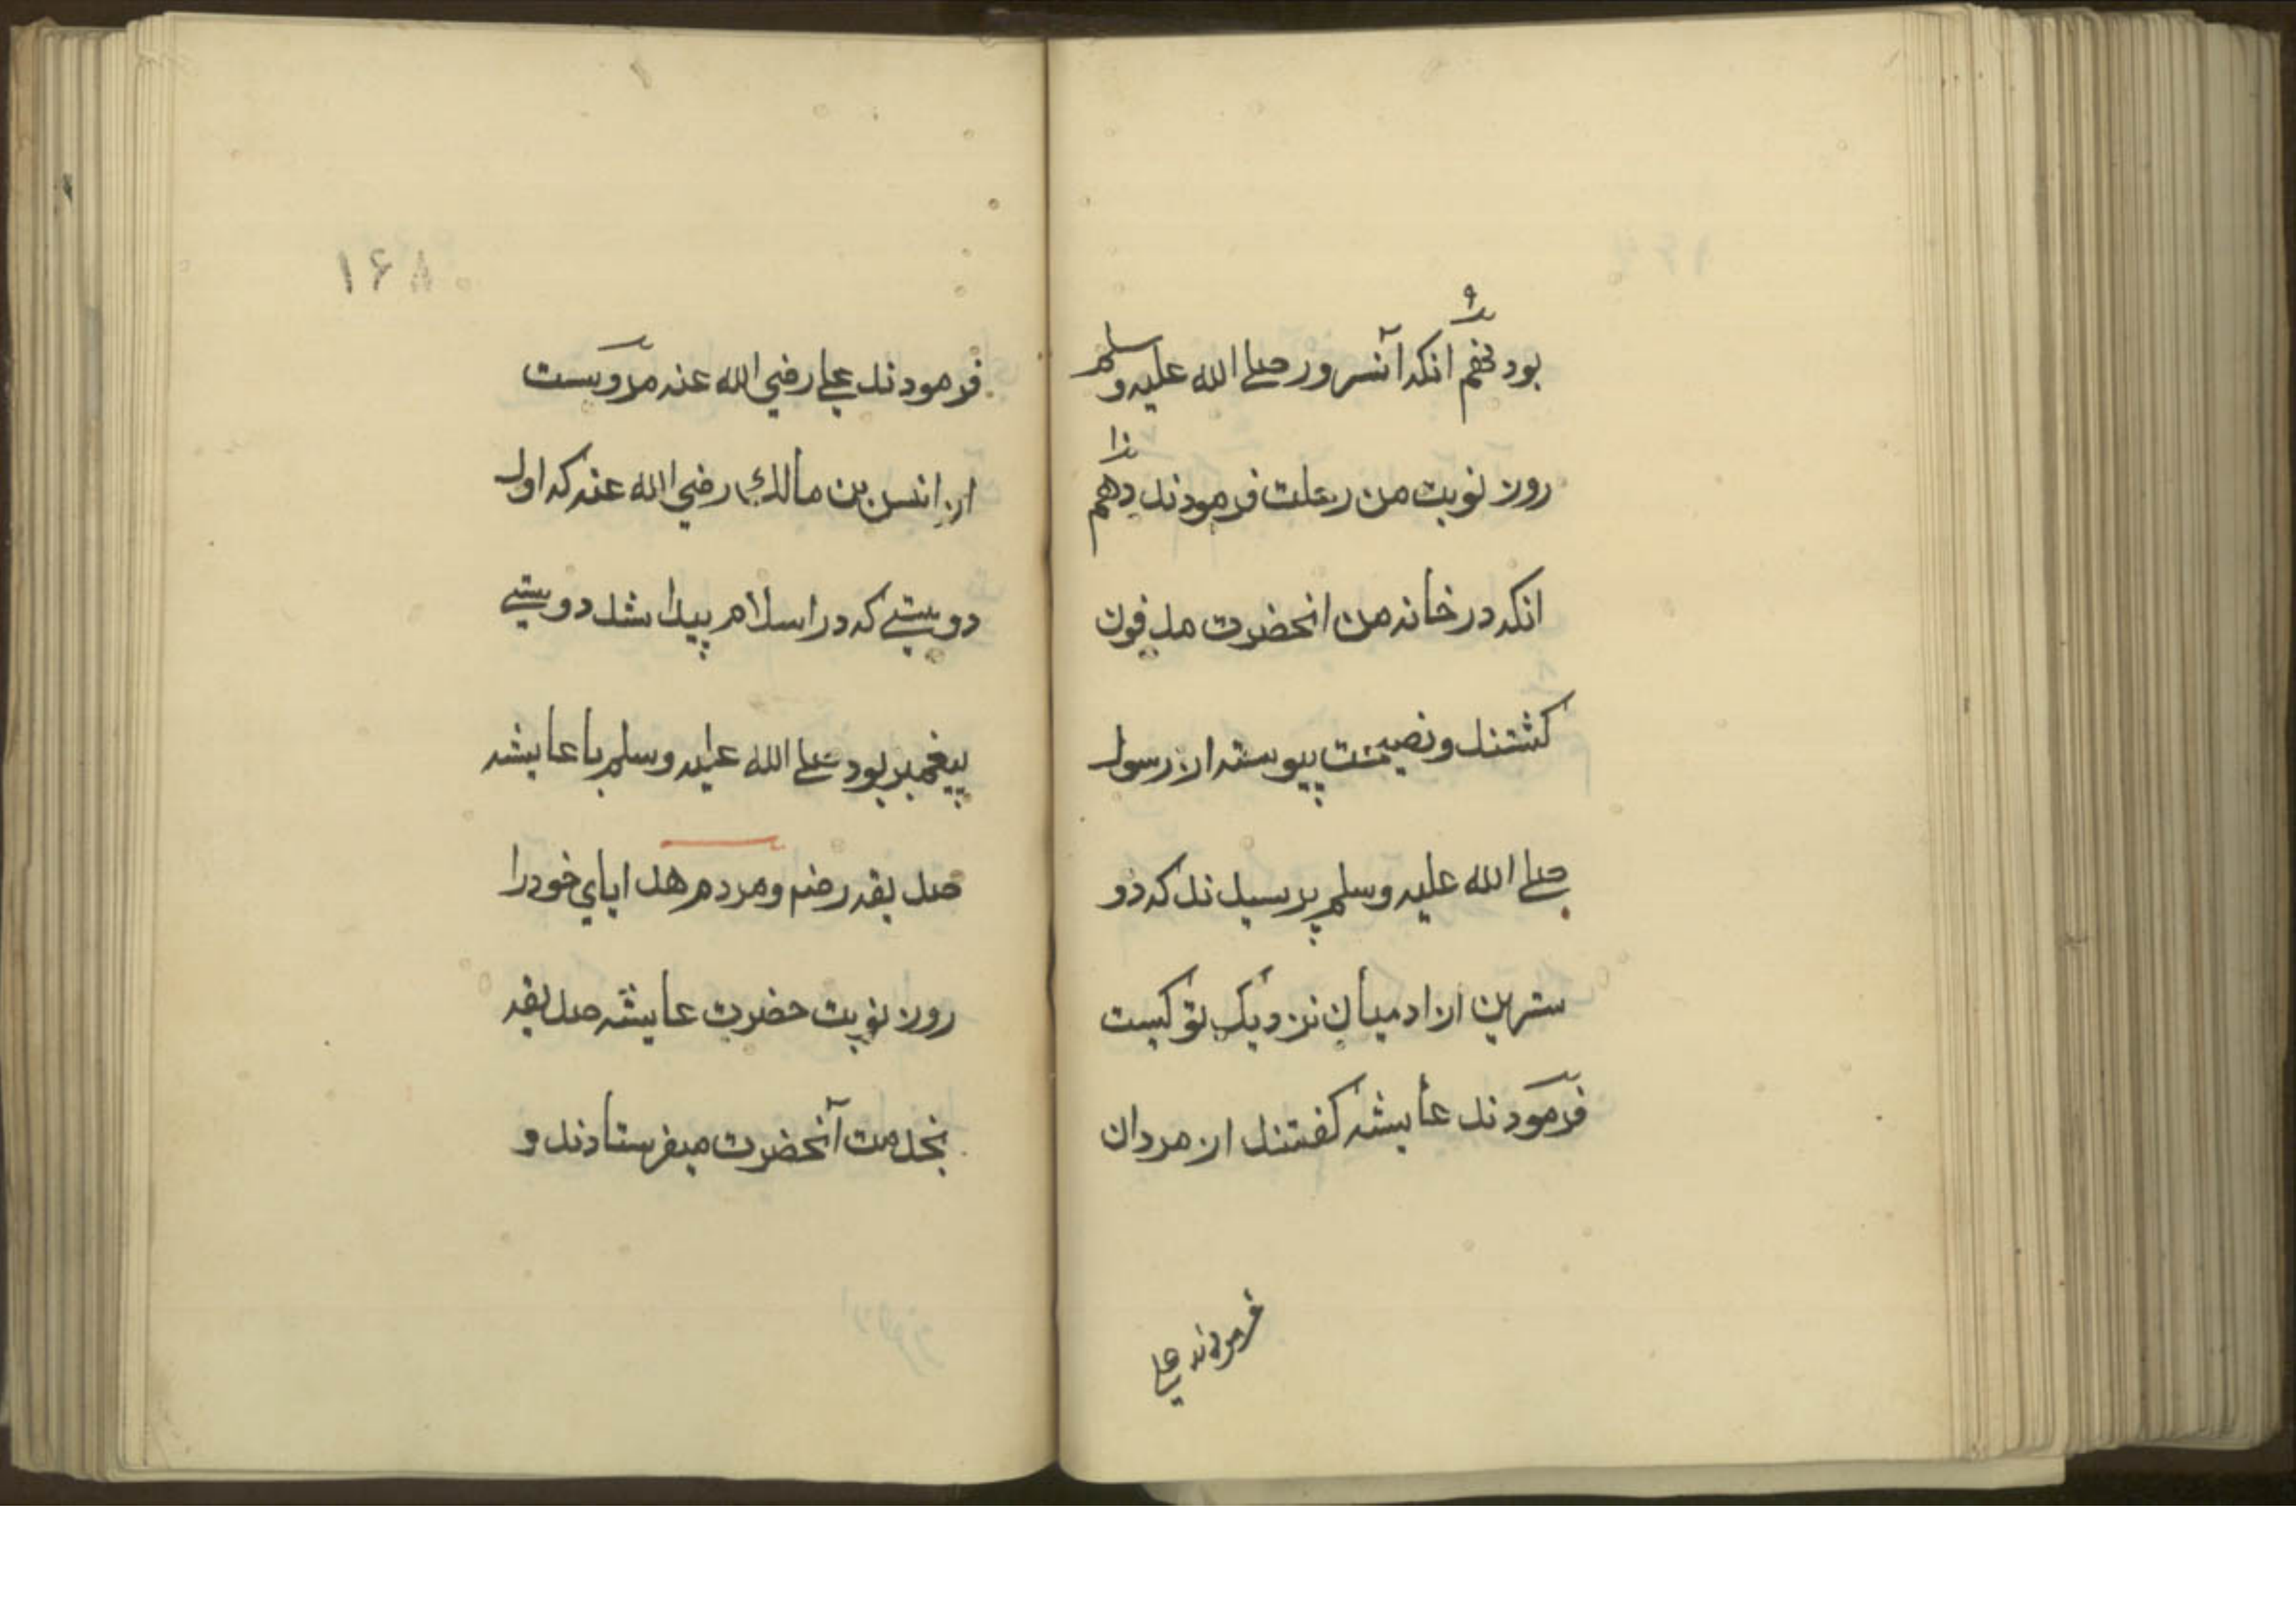 ۹
بود نهم انکه آنسرور صلی الله علیه وسلم
۱۰
روز نوبت من رحلت فرمودند دهم
انکه در خانه من انحضرت مدفون
کشتند و نصیحت پیوسته از رسول
صلی الله علیه وسلم پرسیدند که دو
سترین از ادمیان نزدیک تو کیست
فرمودند عایشه کفتند از مردان
فرمودند علی
۱۶۸
فرمودند علی رضی الله عنه مرویست
از انس بن مالک رضی الله عنه که اول
دوستی که در اسلام پیدا شد دوستی
پیغمبر بود صلی الله علیه وسلم با عایشه
صدیقه رضه ومردم هدایای خود را
روز نوبت حضرت عایشه صدیقه
بخدمت آنحضرت میفرستادند و